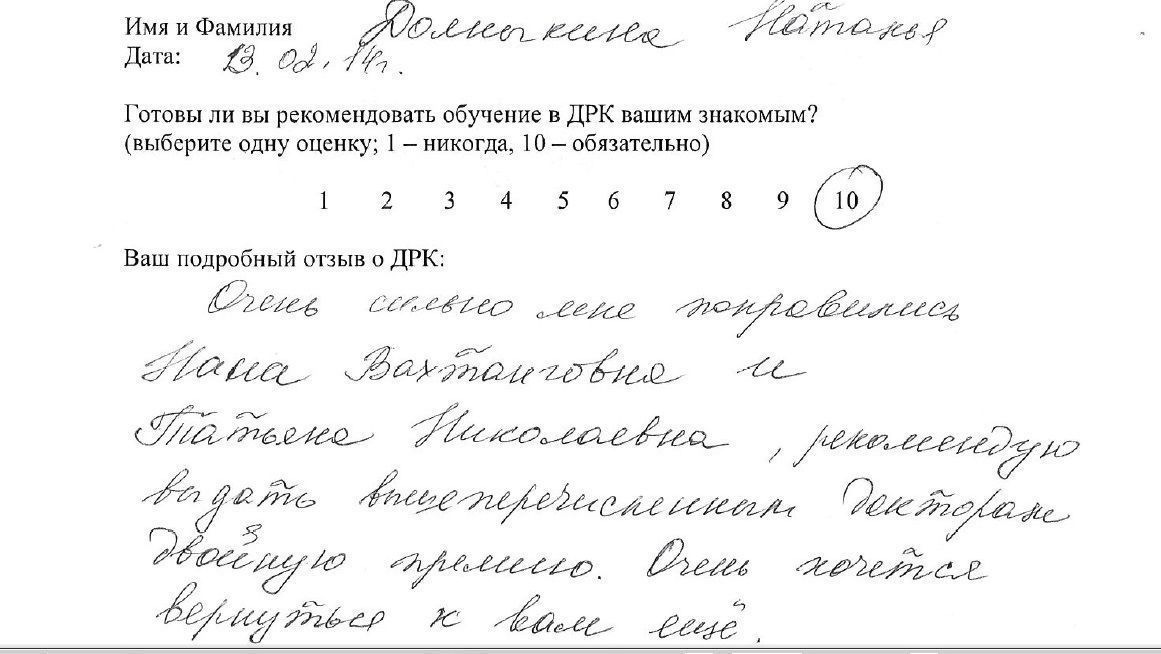 Имя и Фамилия Долныкина Наталья
Дата: 13.02.14г.
Готовы ли вы рекомендовать обучение в ДРК вашим знакомым?
(выберите одну оценку; 1 – никогда, 10 – обязательно)
1 2 3 4 5 6 7 8 9 10
Ваш подробный отзыв о ДРК:
Очень сильно мне понравились
Нана Вахтанговна и
Татьяна Николаевна, рекомендую
выдать вышеперечисленным докторам
двойную премию. Очень хочется
вернуться к вам ещё.